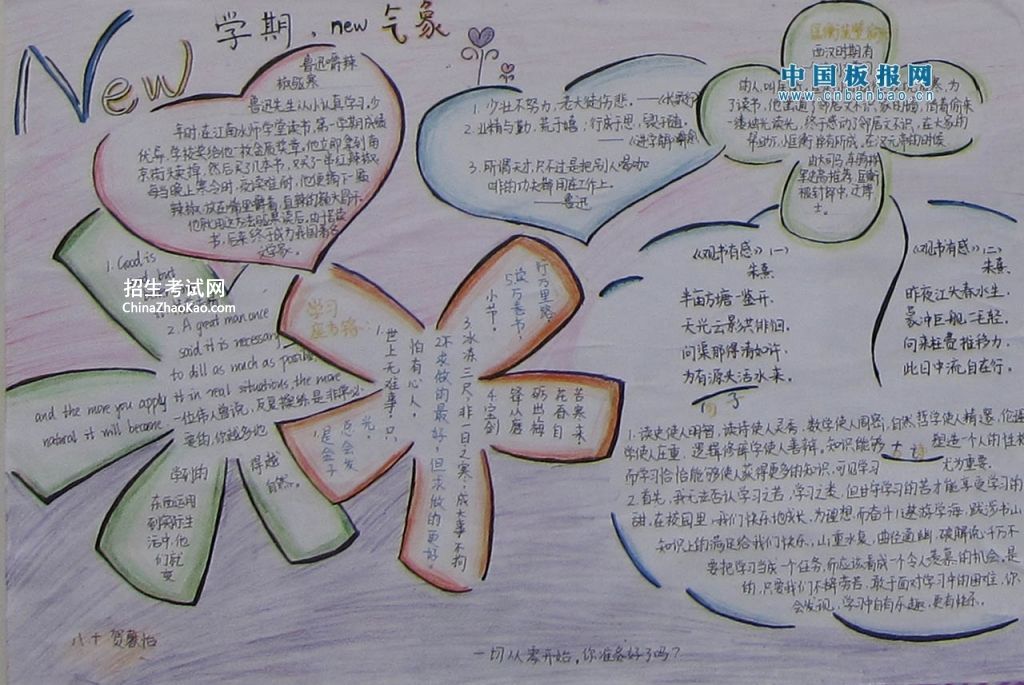 New 学期、new 气象
鲁迅嚼辣
椒驱寒
鲁迅先生从小认真学习。少
年时,在江南水师学堂读书,第一学期成绩
优异,学校奖给他一枚金质奖章。他立即拿到南
京街头卖掉,然后买了几本书,又买了一串红辣椒。
每当晚上寒冷时,夜读难耐,他便摘下一颗
辣椒,放在嘴里嚼着,直辣的额头冒汗。
他就用这种办法驱寒坚持读书。
书,后来终于成为我国著名
文学家。
1. 少壮不努力,老大徒伤悲。
2. 业精于勤,荒于嬉;行成于思,毁于随。
——《进学解》
3. 所谓天才,只不过是把别人喝咖
啡的功夫都用在工作上。
——鲁迅
匡衡凿壁
西汉时期有
了读书,
一缕烛光读光,终于感动了邻居文不识,在大家的
帮助下,小匡衡学有所成。在汉元帝的时候,
由大司马、车骑将
军史高推荐,匡衡
被封郎中,迁博
士。
中国板报网
www.cnbanbao.cn
《观书有感》(一)
朱熹
半亩方塘一鉴开,
天光云影共徘徊。
问渠那得清如许,
为有源头活水来。
《观书有感》(二)
朱熹
昨夜江头春水生,
蒙冲巨舰一毛轻。
向来枉费推移力,
此日中流自在行。
1. Good is
but
招生考试网
ChinaZhaoKao.com
2. A great man once
said it is necessary
to dill as much as possible,
and the more you apply it in real situations, the more
natural it will become
一位伟人曾说,反复操练是非常必
要的,你越多地
学到的
东西运用
到实际生
活中,他
们就变
得越
自然。
学习
座右铭:
1. 世上无难事,只
怕有心人。
2. 不求做的最好,但求做的更好。
3. 冰冻三尺,非一日之寒;成大事不拘
小节。
4. 宝剑
锋从磨
砺出,梅
花香自
苦寒来
5. 读万卷书,
行万里路。
是金子
总会发
光。
句子
1. 读史使人明智,读诗使人灵秀,数学使人周密,自然哲学使人精邃,伦理
学使人庄重,逻辑修辞学使人善辩。知识能够塑造一个人的性格
而学习恰恰能够使人获得更多的知识,可见学习尤为重要。
2. 首先,我无法否认学习之苦,学习之累,但甘于学习的苦才能享受学习的
甜,在校园里,我们快乐地成长,为理想而奋斗!遨游学海,跋涉书山
知识上的满足给我们快乐,山重水复,曲径通幽,破解
要把学习当成一个任务,而应该看成一个令人羡慕的机会。是
的,只要我们不解劳苦,敢于面对学习中的困难,你
会发现,学习中自有乐趣,更有快乐。
八十 贺慕怡
一切从零开始,你准备好了吗?